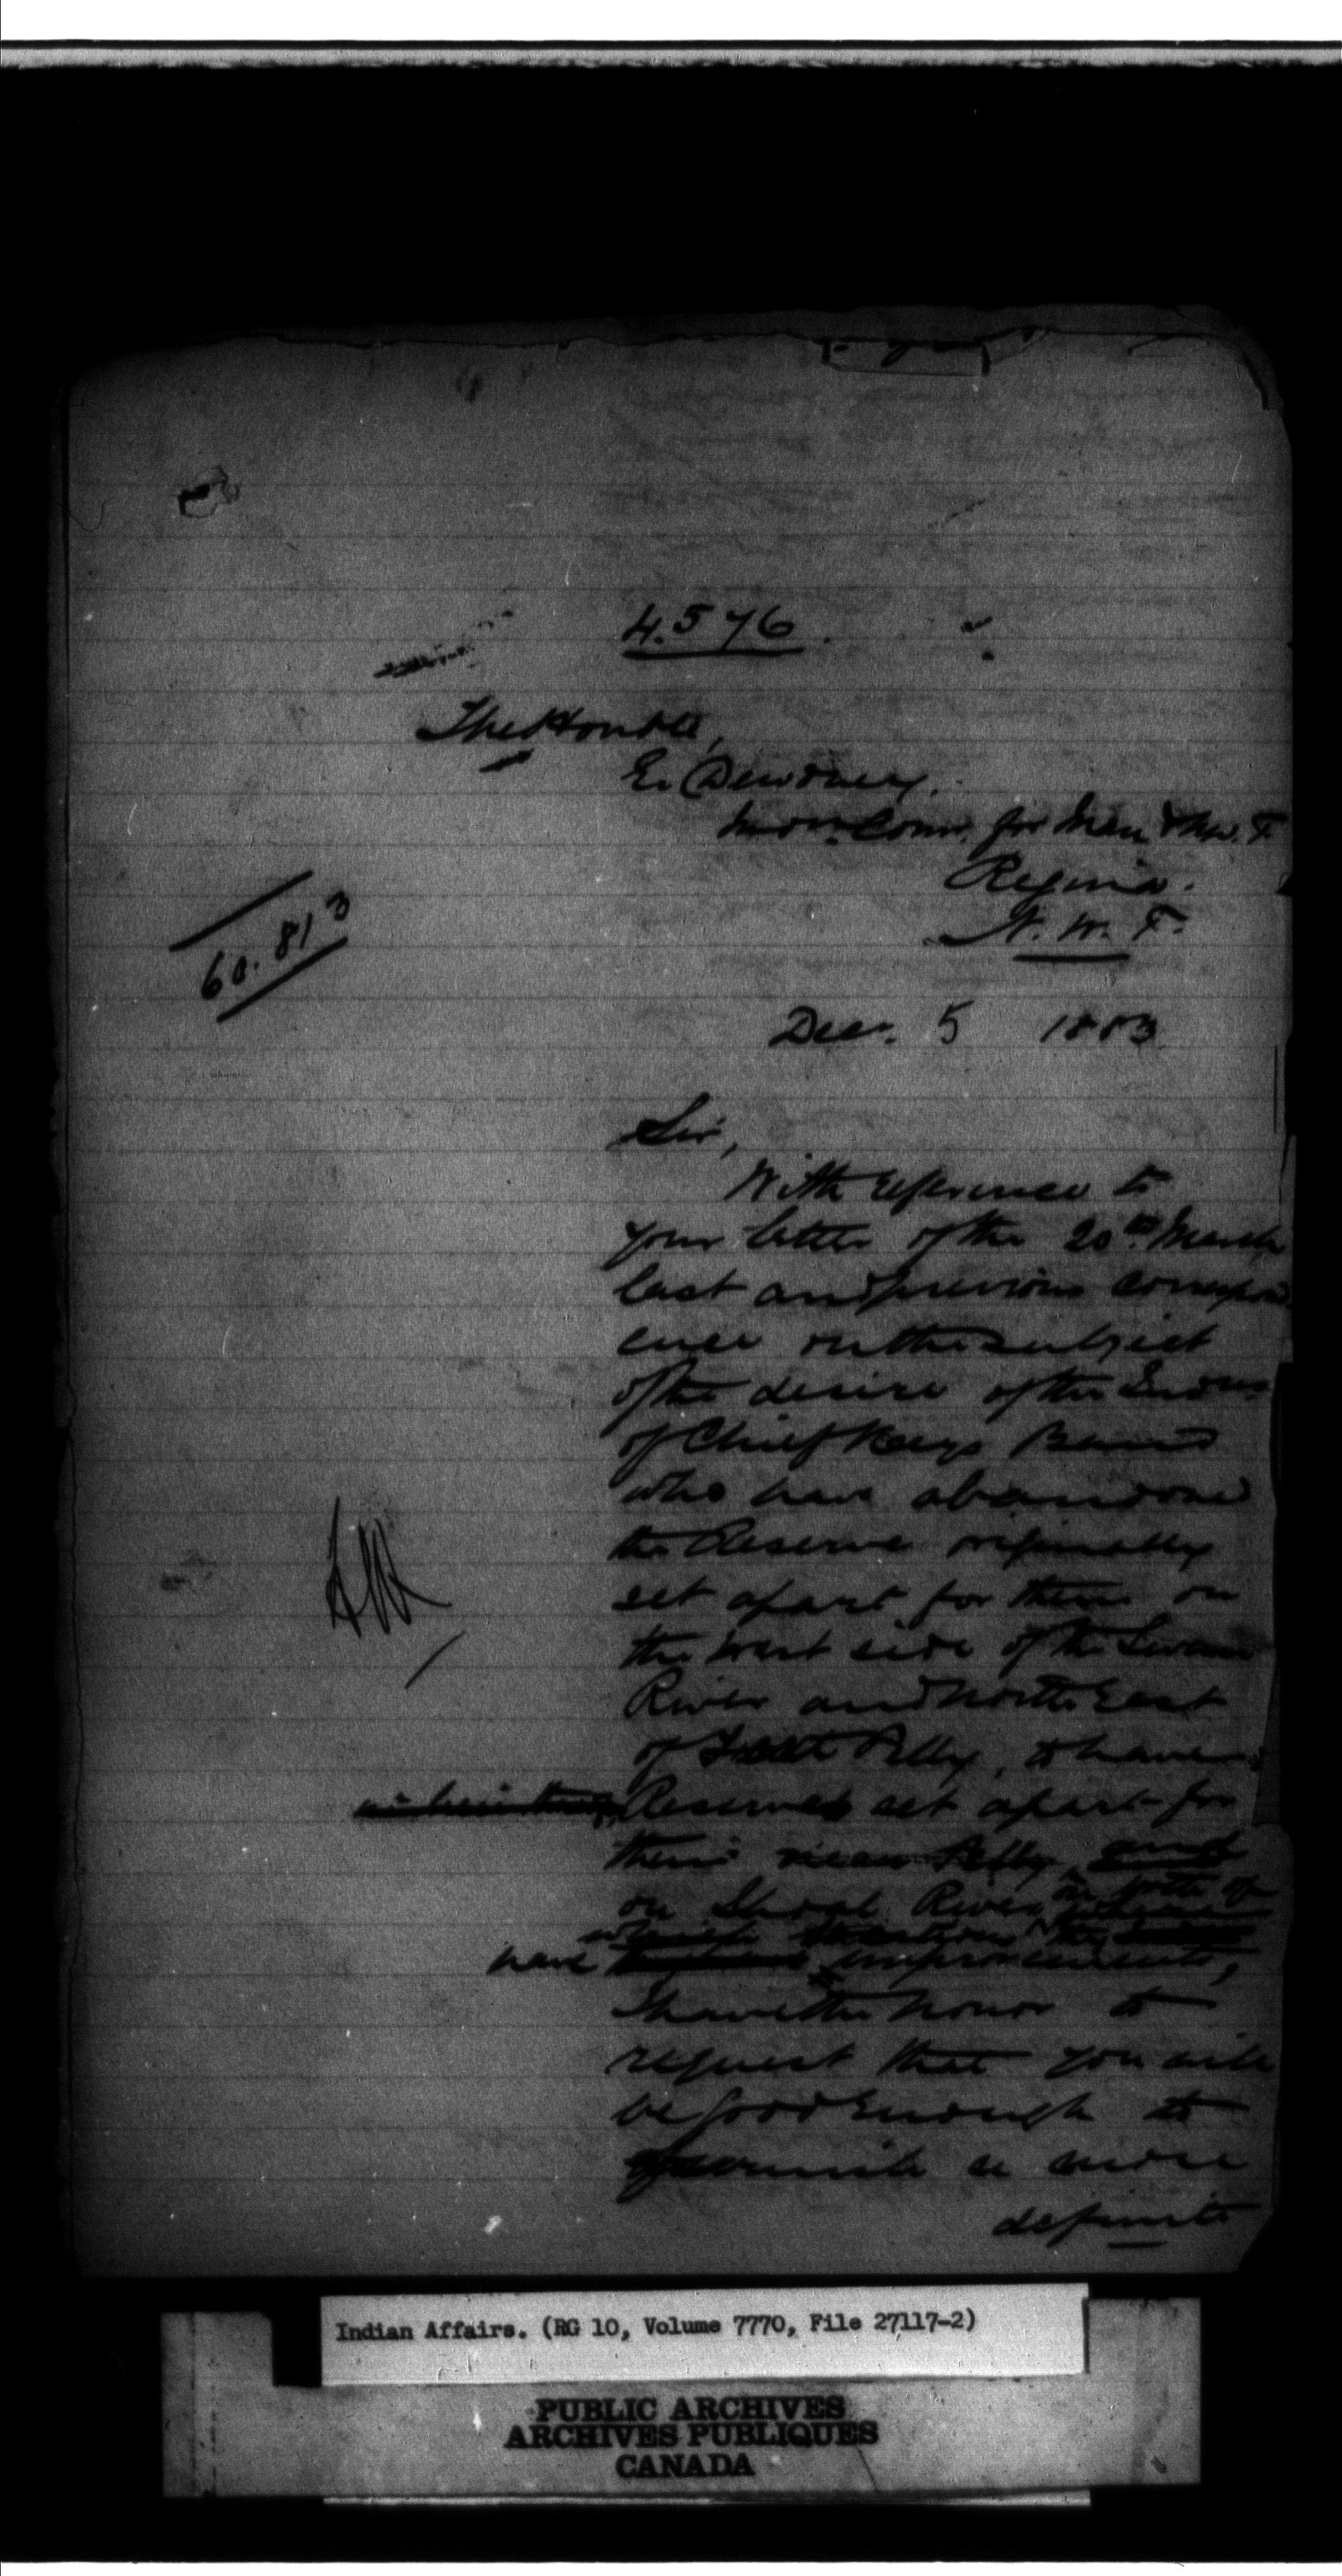 4.576.
The Honble,
E. Dewdney,
Indn. Comr. for Man. & N.W.T.
Regina.
N. W. T.
60.813
Dec. 5 1883
Sir,
With reference to
your letter of the 20th. March
last and previous correspond
ence on the subject
of the desire of the Indns
of Chief Keys Band
who have abandoned
the Reserve originally
set apart for them on
the West side of the Swan
River and North East
of Fort Pelly, to have
Reserves set apart for
them near Pelly and
on Shoal River
have improvements,
I have the honor to
request that you will
be good enough to
furnish a more
definite
Indian Affairs. (RG 10, Volume 7770, File 27117-2)
PUBLIC ARCHIVES
ARCHIVES PUBLIQUES
CANADA